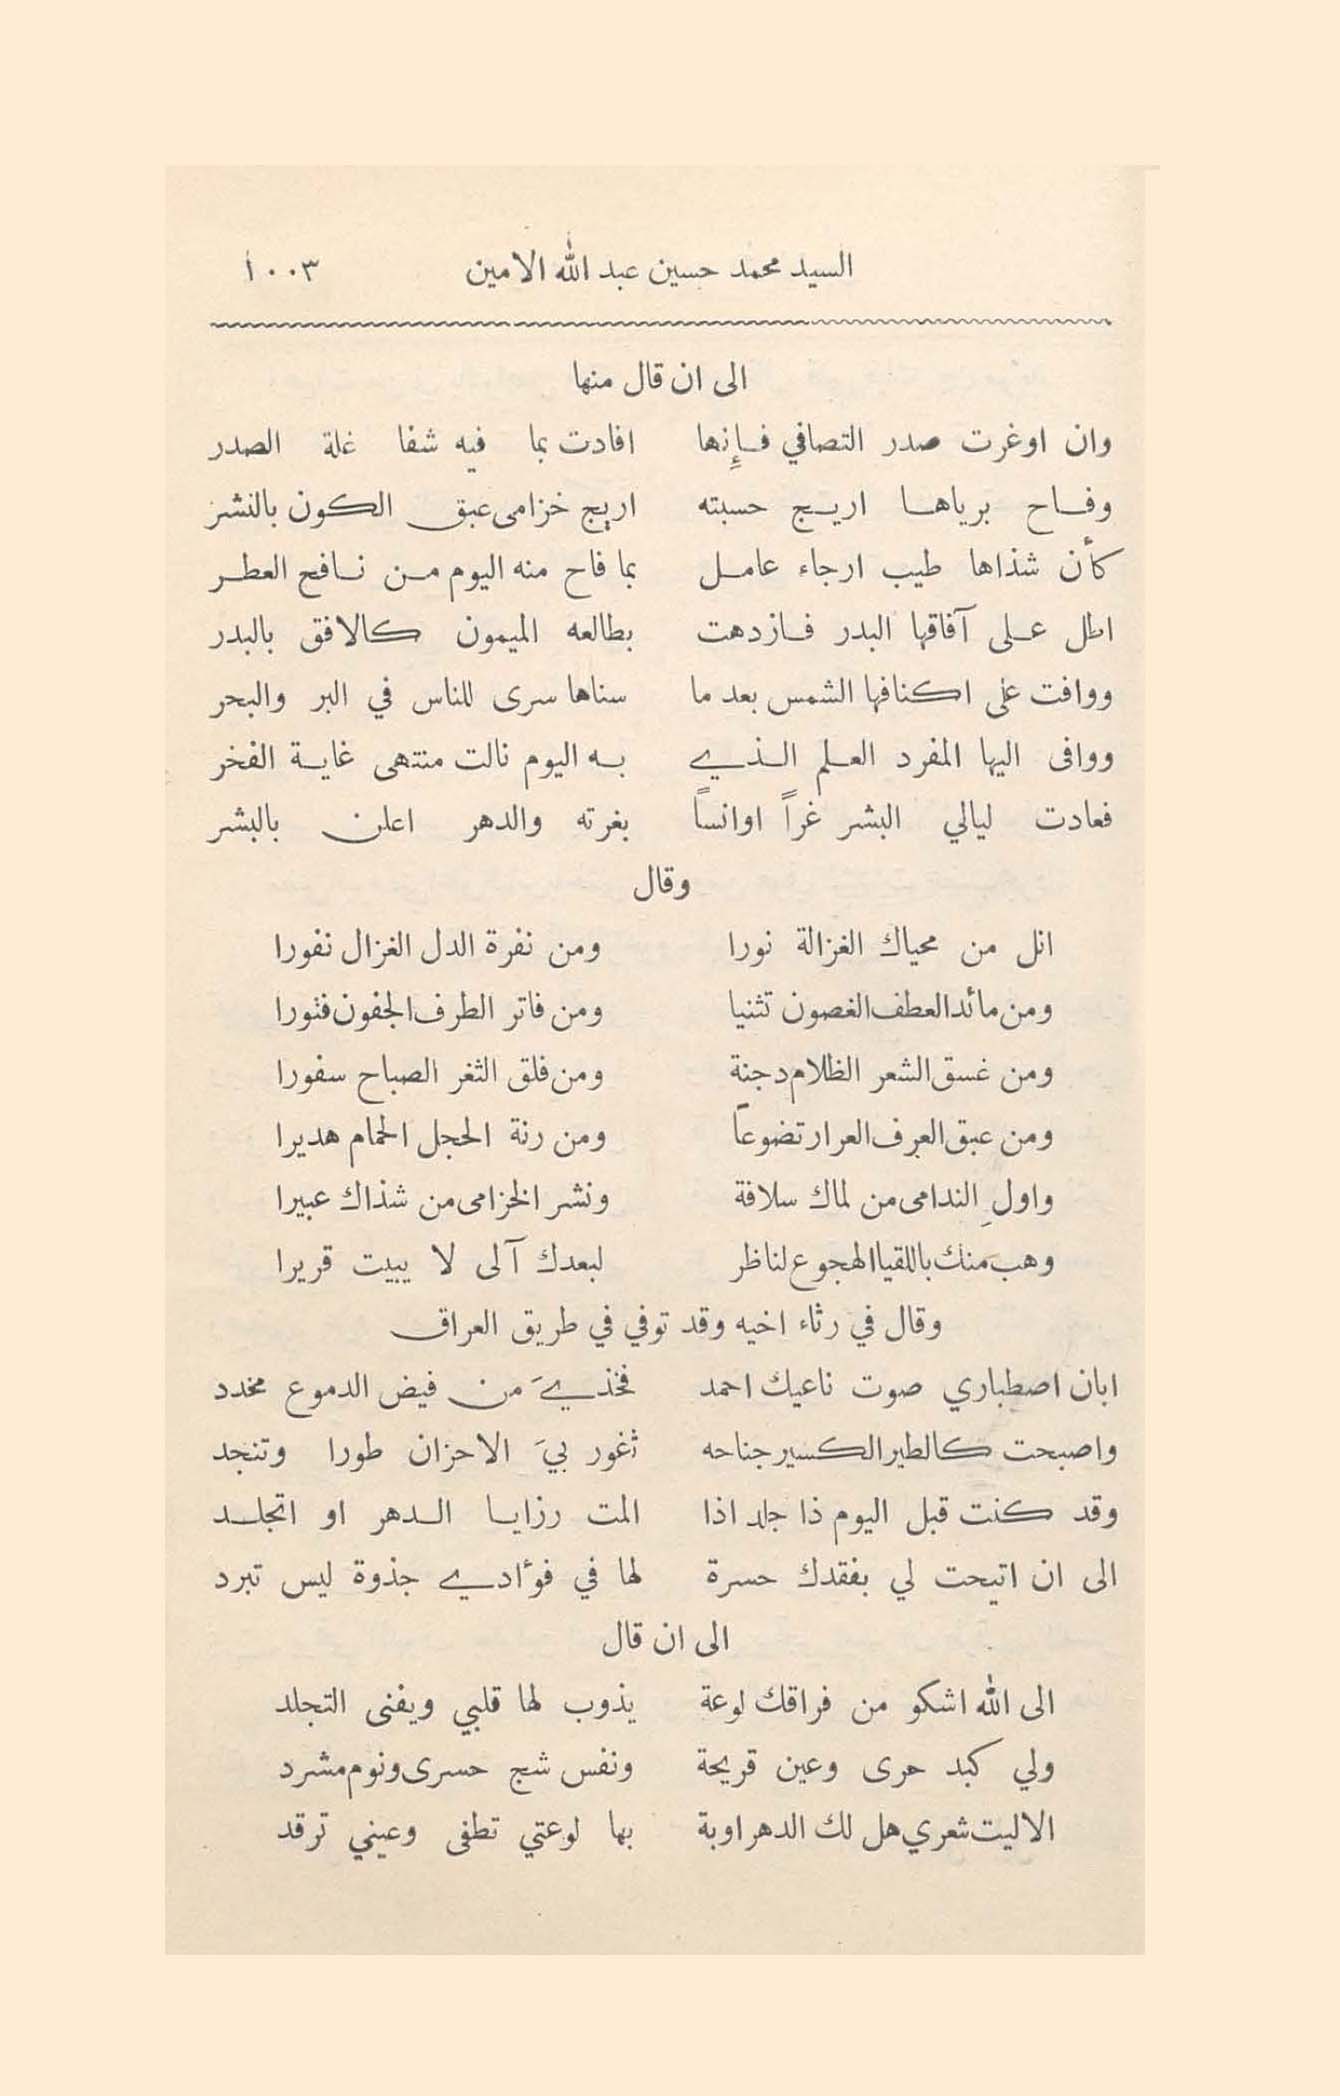 السيد محمد حسين عبد الله الامين ١٠٠٣
الى ان قال منها
وان اوغرت صدر التصافي فإنها افادت بما فيه شفا غلة الصدر
وفاح برياها اريج حسبته اريج خزامى عبق الكون بالنشر
كأن شذاها طيب ارجاء عامل بما فاح منه اليوم من نافح العطر
اطل على آفاقها البدر فازدهت بطالعه الميمون كالافق بالبدر
ووافت على اكنافها الشمس بعد ما سناها سرى للناس في البر والبحر
ووافى اليها المفرد العلم الذي به اليوم نالت منتهى غاية الفخر
فعادت ليالي البشر غراً اوانساً بغرته والدهر اعلن بالبشر
وقال
انل من محياك الغزالة نورا ومن نفرة الدل الغزال نفورا
ومن مائد العطف الغصون تثنيا ومن فاتر الطرف الجفون فتورا
ومن غسق الشعر الظلام دجنة ومن فلق الثغر الصباح سفورا
ومن عبق العرف العرار تضوعاً ومن رنة الحجل الحمام هديرا
واولِ الندامى من لماك سلافة ونشر الخزامى من شذاك عبيرا
وهب منك باللقيا الهجوع لناظر لبعدك آلى لا يبيت قريرا
وقال في رثاء اخيه وقد توفي في طريق العراق
ابان اصطباري صوت ناعيك احمد فخذيَ من فيض الدموع مخدد
واصبحت كالطير الكسير جناحه تغور بيَ الاحزان طورا وتنجد
وقد كنت قبل اليوم ذا جلد اذا المت رزايا الدهر او اتجلد
الى ان اتيحت لي بفقدك حسرة لها في فؤادي جذوة ليس تبرد
الى ان قال
الى الله اشكو من فراقك لوعة يذوب لها قلبي ويفنى التجلد
ولي كبد حرى وعين قريحة ونفس شج حسرى ونوم مشرد
الا ليت شعري هل لك الدهر اوبة بها لوعتي تطفى وعيني ترقد